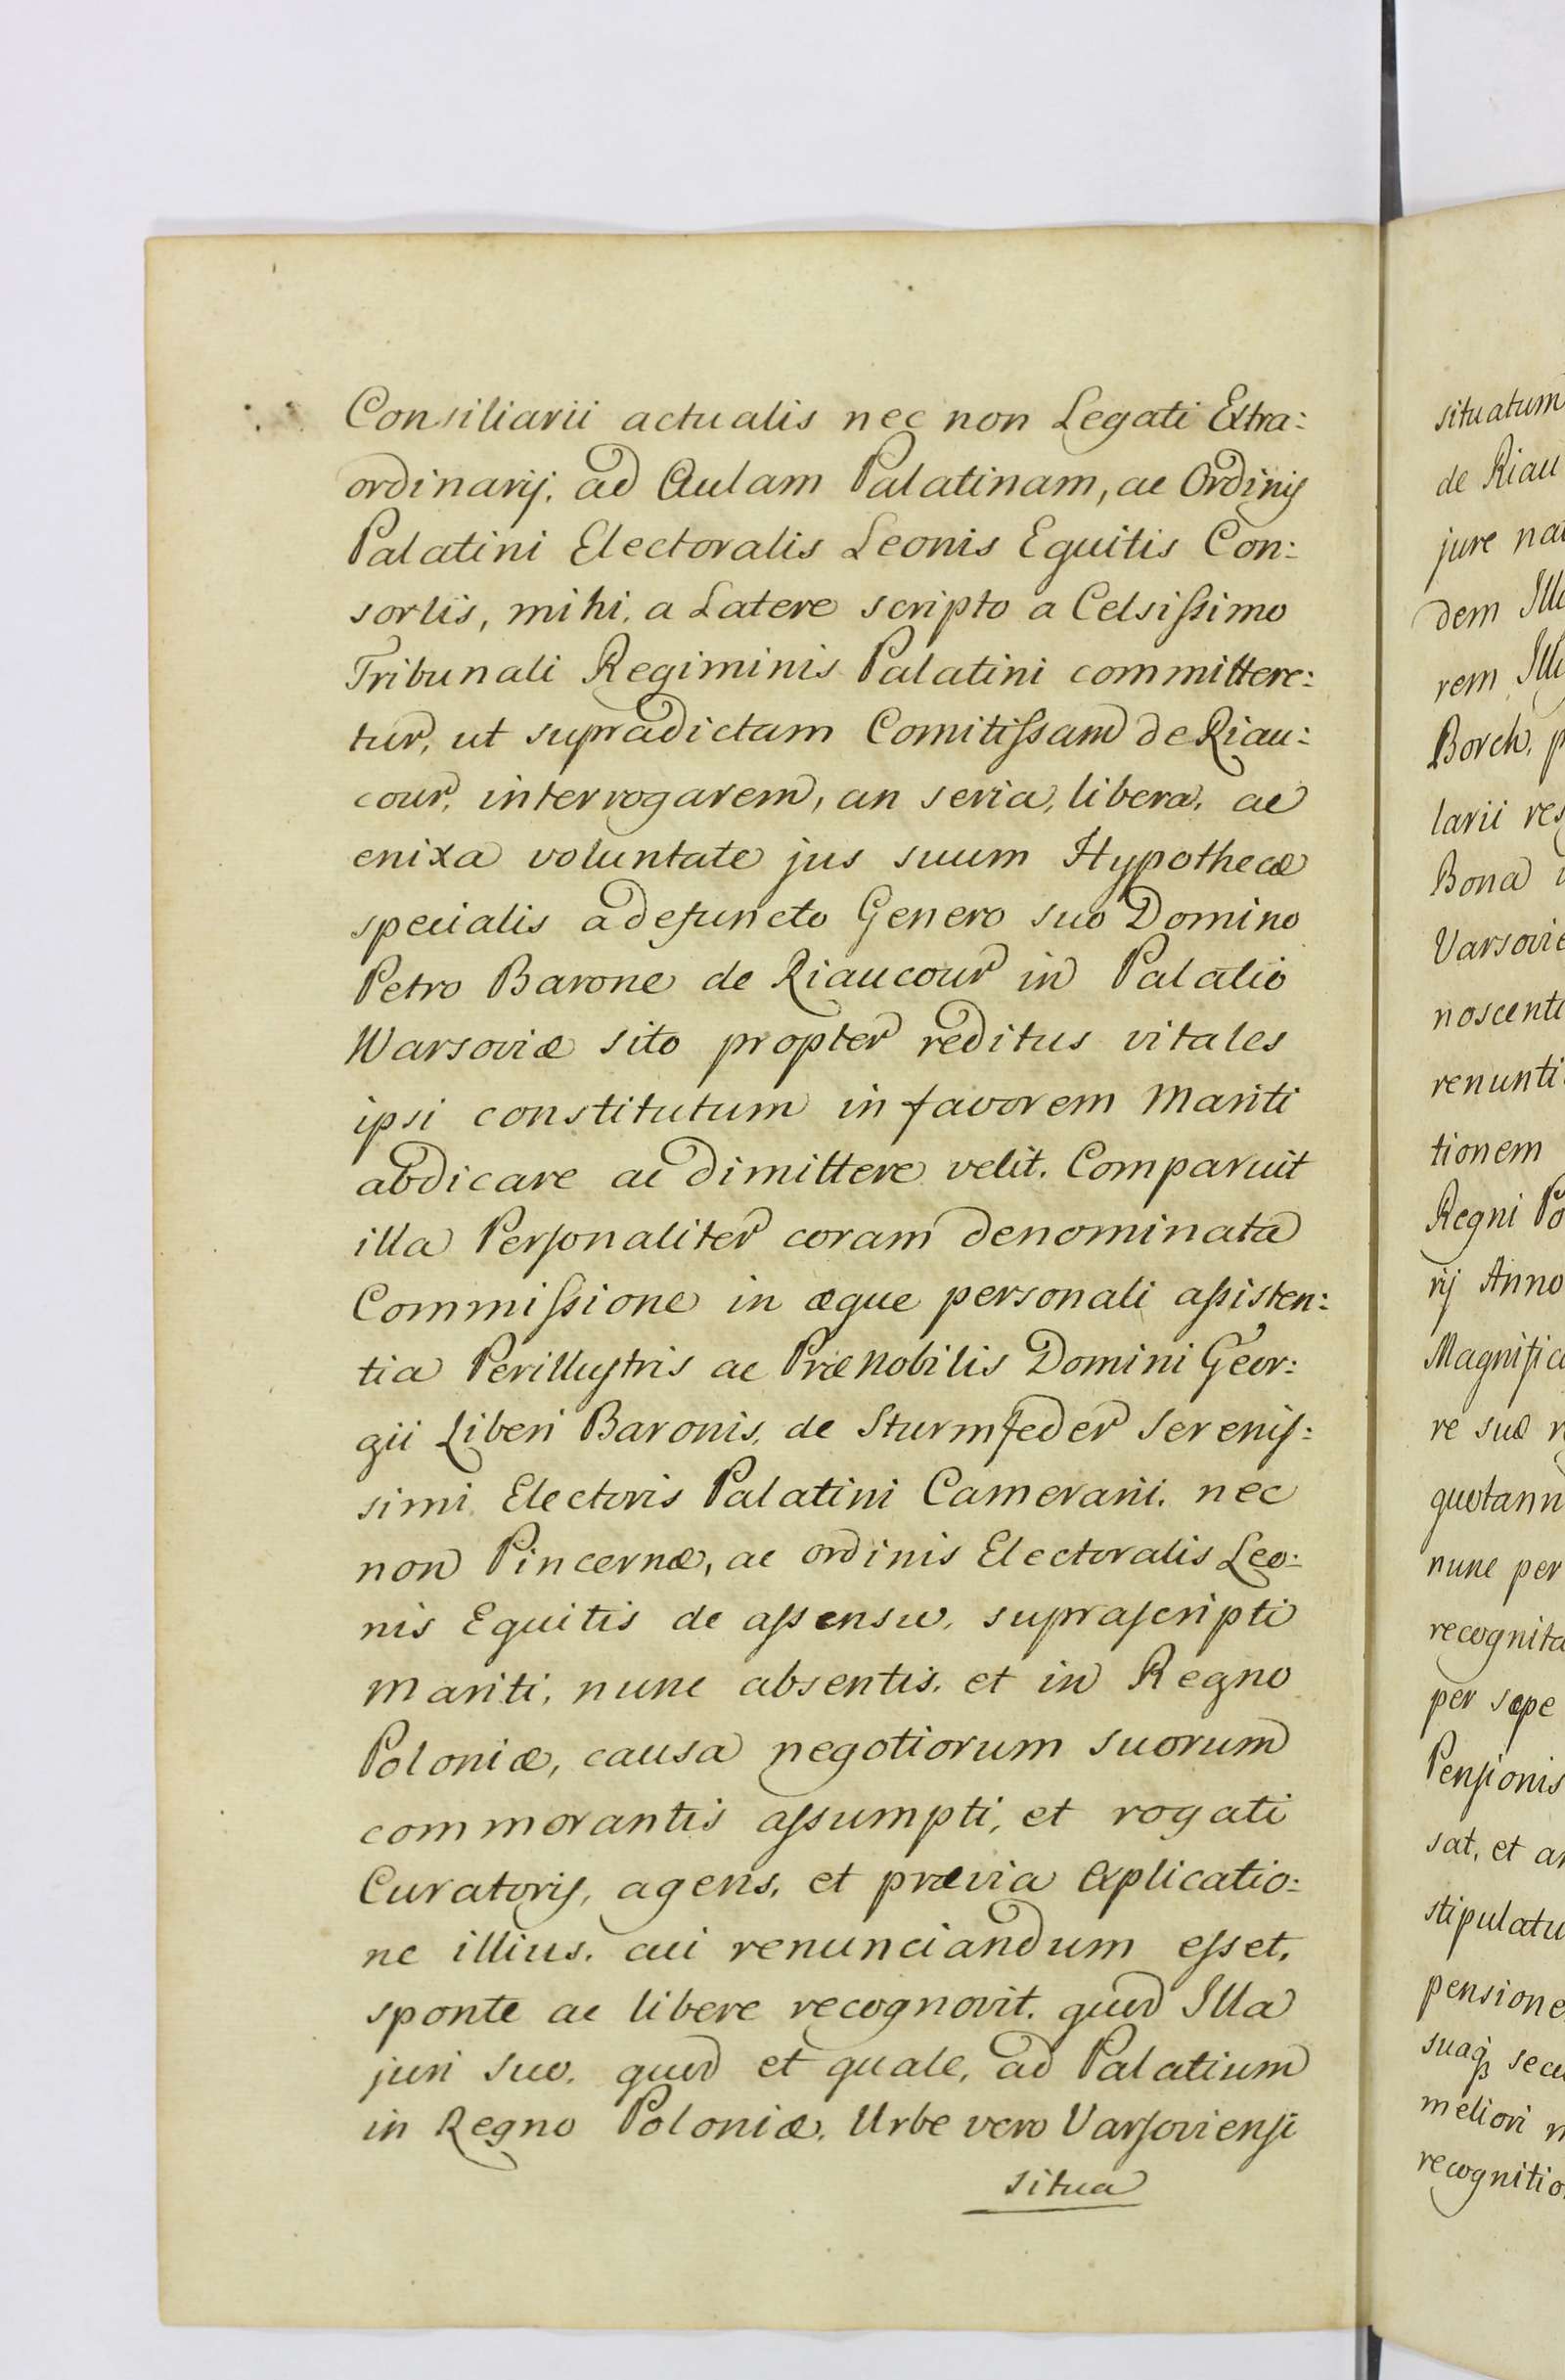 Consiliarii actualis nec non Legati Extra:
ordinarij, ad Aulam Palatinam, ac Ordinis
Palatini Electoralis Leonis Equitis Con:
sortis, mihi, a Latere scripto a Celsissimo
Tribunali Regiminis Palatini committere:
tur, ut supradictam Comitissam de Riau:
cour, interrogarem, an seria, libera, ac
enixa voluntate jus suum Hypothecæ
specialis a defuncto Genero suo Domino
Petro Barone de Riaucour in Palatio
Warsoviæ sito propter reditus vitales
ipsi constitutum in favorem Mariti
abdicare ac dimittere velit. Comparuit
illa Personaliter coram denominata
Commissione in æque personali assisten:
tia Perillustris ac Prænobilis Domini Geor:
gii Liberi Baronis, de Sturmfeder Serenis:
simi Electoris Palatini Camerarii, nec
non Pincernæ, ac ordinis Electoralis Leo:
nis Equitis de assensu, suprascripti
Mariti, nunc absentis, et in Regno
Poloniæ, causa negotiorum suorum
commorantis assumpti, et rogati
Curatoris, agens, et prævia explicatio:
ne illius, cui renunciandum esset,
sponte ac libere recognovit, quod Illa
juri suo, quod et quale, ad Palatium
in Regno Poloniæ, Urbe vero Varsoviensi
situa
situatum
de Riau
jure nat
dem Ill
rem Ill
Borch, p
larii res
Bona
Varsovie
noscent
renunti
tionem
Regni Po
rij Anno
Magnific
re suæ
quotann
nunc per
recognita
per sæpe
Pensionis
sat, et a
stipulatu
pensione
suaq3 secu
meliori
recognitio